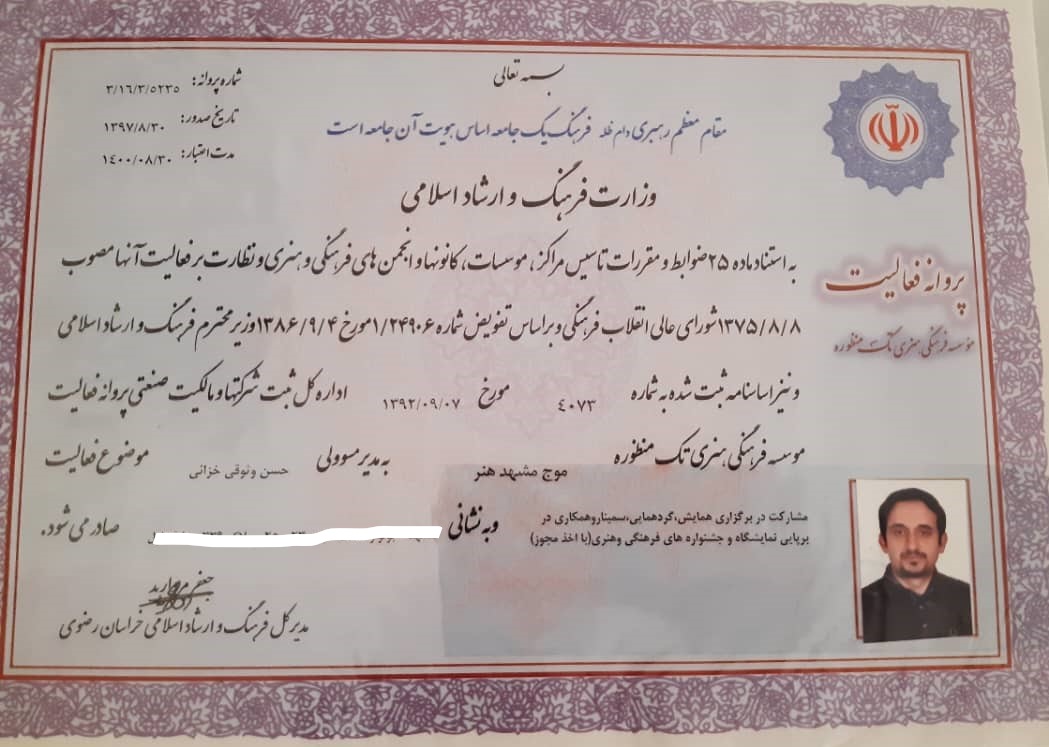 بسمه تعالی
شماره پروانه: ۳/۱۶/۳/۵۲۳۵
تاریخ صدور: ۱۳۹۷/۸/۳۰
مدت اعتبار: ۱۴۰۰/۰۸/۳۰
مقام معظم رهبری دام ظله فرهنگ یک جامعه اساس هویت آن جامعه است
وزارت فرهنگ و ارشاد اسلامی
پروانه فعالیت
موسسه فرهنگی هنری تک منظوره
به استناد ماده ۲۵ ضوابط و مقررات تاسیس مراکز، موسسات، کانونها و انجمن های فرهنگی و هنری و نظارت بر فعالیت آنها مصوب
۱۳۷۵/۸/۸ شورای عالی انقلاب فرهنگی و براساس تفویض شماره ۱/۲۴۹۰۶ مورخ ۱۳۸۶/۹/۴ وزیر محترم فرهنگ و ارشاد اسلامی
و نیز اساسنامه ثبت شده به شماره ۴۰۷۳ مورخ ۱۳۹۲/۰۹/۰۷ اداره کل ثبت شرکتها و مالکیت صنعتی پروانه فعالیت
موسسه فرهنگی هنری تک منظوره موج مشهد هنر به مدیر مسوولی حسن وثوقی خزائی موضوع فعالیت
مشارکت در برگزاری همایش،گردهمایی،سمیناروهمکاری در
برپایی نمایشگاه و جشنواره های فرهنگی وهنری(با اخذ مجوز)
و به نشانی صادر می شود.
جعفر مروارید
مدیر کل فرهنگ و ارشاد اسلامی خراسان رضوی